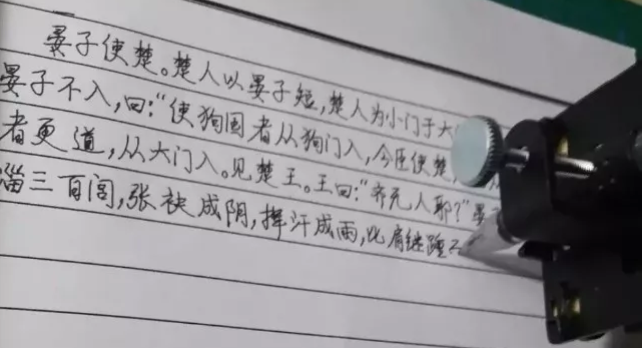 晏子使楚。楚人以晏子短,楚人为小门于大
晏子不入,曰:“使狗国者从狗门入,今臣使楚,
者更道,从大门入。见楚王。王曰:“齐无人耶?”晏
淄三百闾,张袂成阴,挥汗成雨,比肩继踵